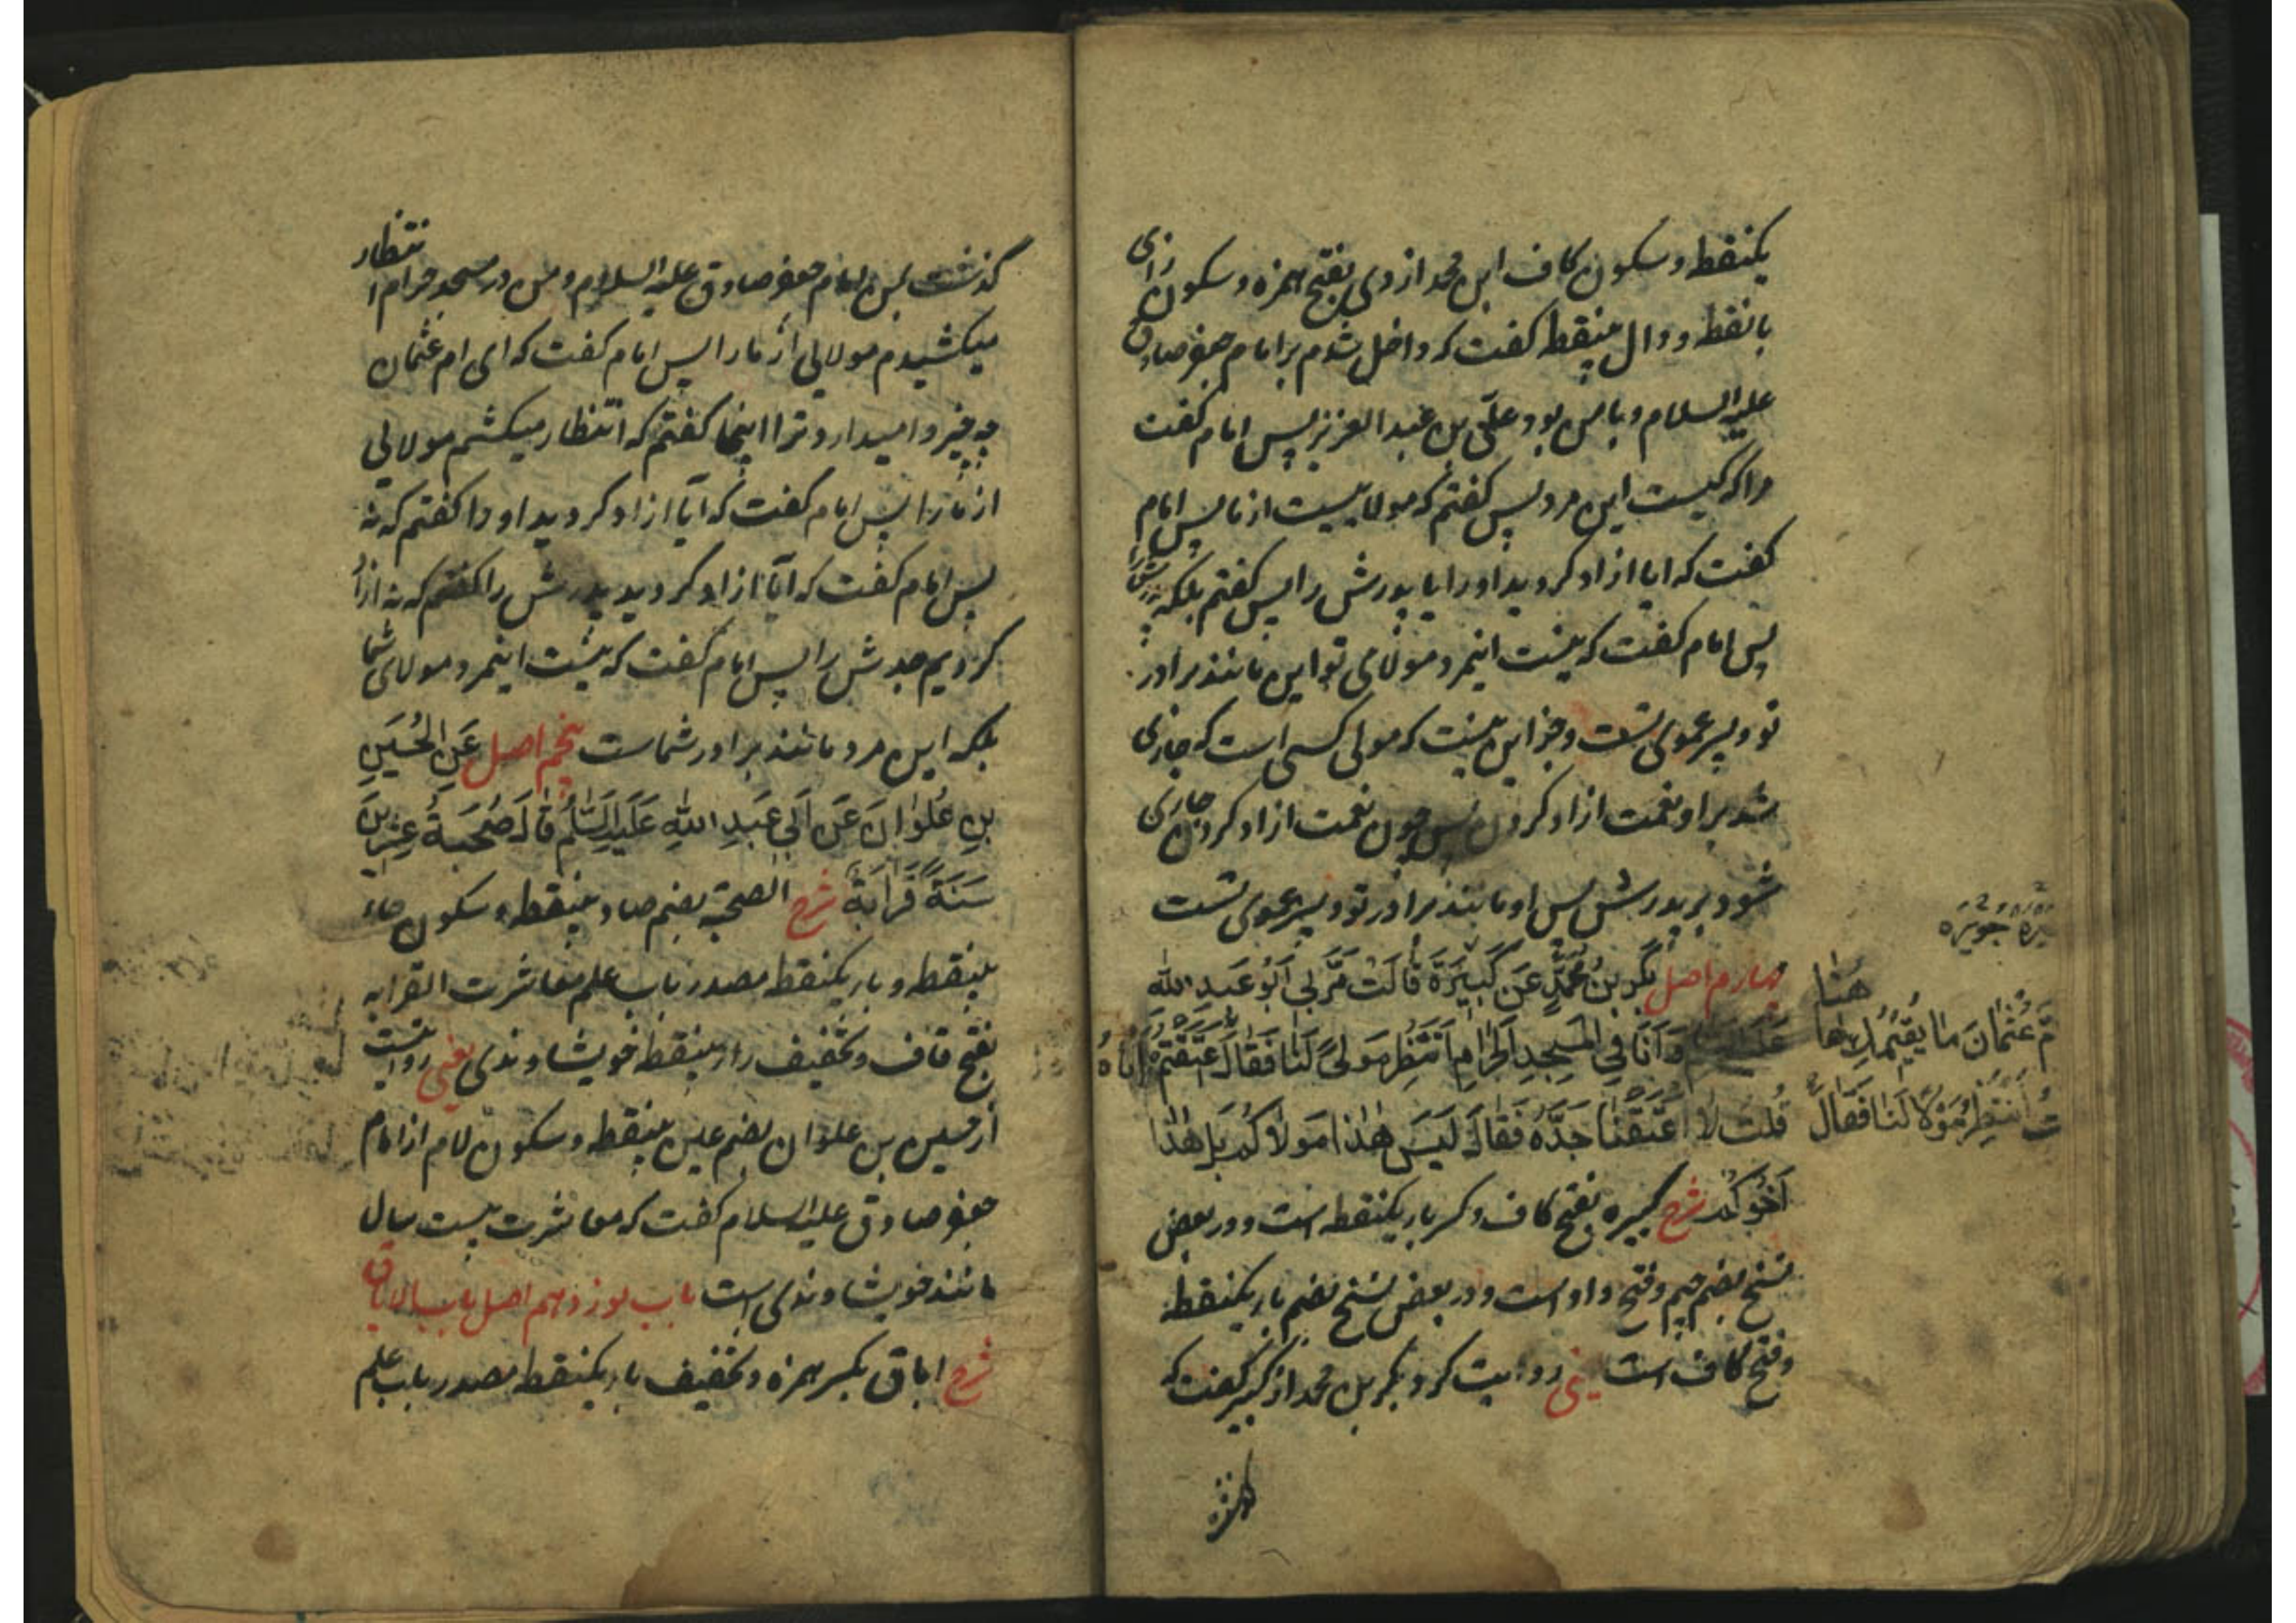 یکنقطه و سکون کاف ابن محمد ازدی بفتح همزه و سکون زای
بانقطه و دال بینقطه کفت که داخل شدم بر امام جعفر صادق
علیه السلام و با من بود علی بن عبد العزیز پس امام کفت
مرا که کیست این مرد پس کفتم که مولاییست از ما پس امام
کفت که ایا ازاد کردید او را یا پدرش را پس کفتم بلکه پدرش را
پس امام کفت که نیست اینمرد مولای تو این مانند برادر
تو و پسر عموی تست و جز این نیست که مولی کسی است که جاری
شد بر او نعمت ازاد کردن پس چون نعمت ازاد کردن جاری
شود بر پدرش پس او مانند برادر تو و پسر عموی تست
چهارم اصل بَکْرِ بنُ مُحَمَّدٍ عَن کَبِیرَةَ قالَتْ مَرَّ بِی اَبُو عَبدِ الله
عَلَیهِ السلام وَ اَنَا فِی المَسجِدِ الحَرامِ اَنتَظِرُ مَولیً لَنا فَقالَ اَعتَقتُم اَباهُ
قُلتُ لا اَعتَقنا جَدَّهُ فَقالَ لَیسَ هٰذا مَولاکُم بَل هٰذا
اَخُوکُم شرح کبیره بفتح کاف و کسر باء یکنقطه است و در بعض
نسخ بضم جیم و فتح واو است و در بعض نسخ بضم باء یکنقطه
و فتح کاف است یعنی روایت کرد بکر بن محمد از کبیره کفت که
جویزه
هٰهُنا
مَّ عُثمانَ ما یُقیمُکِ هٰا
تُ اَنتَظِرُ مَولاً لَنا فَقالَ
کذشت بمن امام جعفر صادق علیه السلام و من در مسجد حرام انتظار
میکشیدم مولایی از ما را پس امام کفت که ای ام عثمان
چه چیز وامیدارد ترا اینجا کفتم که انتظار میکشم مولایی
از ما را پس امام کفت که آیا ازاد کردید او را کفتم که نه
پس امام کفت که آیا ازاد کردید پدرش را کفتم که نه ازاد
کردیم جدش را پس امام کفت که نیست اینمرد مولای شما
بلکه این مرد مانند برادر شماست پنجم اصل عَنِ الحُسَینِ
بنِ عُلوانَ عَن اَبی عَبدِ اللهِ عَلَیهِ السَّلٰمُ قالَ صُحبَةُ عِشرینَ
سَنَةً قَرابَةٌ شرح الصحبة بضم صاد بینقطه و سکون حاء
بینقطه و باء یکنقطه مصدر باب علم معاشرت القرابه
بفتح قاف و تخفیف راء بینقطه خویشاوندی یعنی روایتست
از حسین بن علوان بضم عین بینقطه و سکون لام از امام
جعفر صادق علیه السلام کفت که معاشرت بیست سال
مانند خویشاوندی است باب نوزدهم اصل باب الاباق
شرح اباق بکسر همزه و تخفیف باء یکنقطه مصدر باب علم